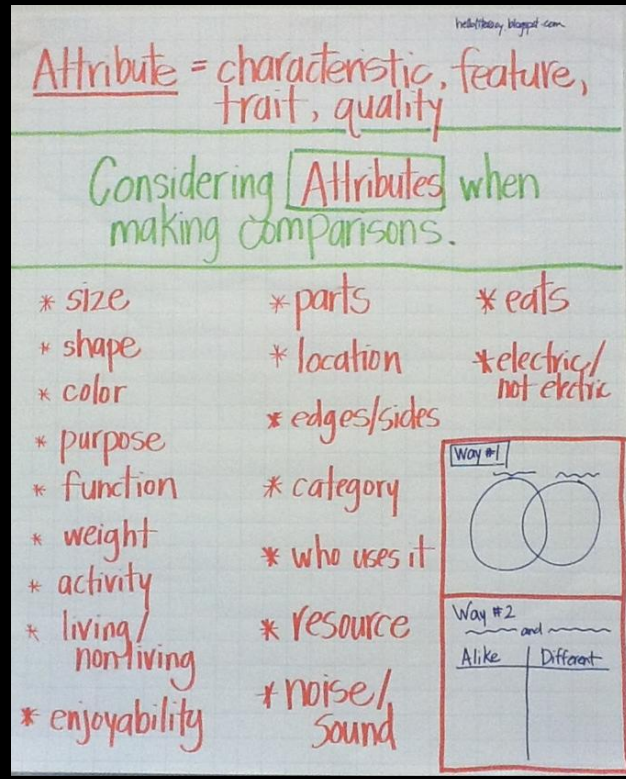 helloliteracy.blogspot.com
Attribute = characteristic, feature,
trait, quality
Considering Attributes when
making comparisons.
* size
* shape
* color
* purpose
* function
* weight
* activity
* living/
nonliving
* enjoyability
* parts
* location
* edges/sides
* category
* who uses it
* resource
* noise/
sound
* eats
* electric/
not electric
Way #1
Way #2
and
Alike Different